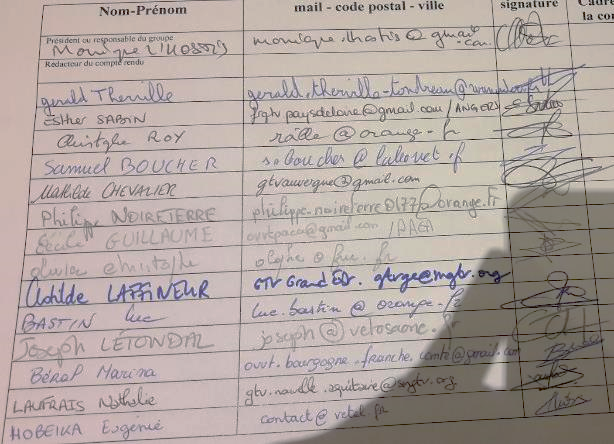 Nom-Prénom mail - code postal - ville signature Cadre
la co
Président ou responsable du groupe
Monique monique.
Rédacteur du compte rendu
gerald Therville
Esther SABIN frgtv paysdelaloire@gmail.com / ANGERS
Christophe ROY @ orange.fr
Samuel BOUCHER s.boucher @
Mathilde CHEVALIER gtvauvergne@gmail.com
Philippe NOIRETERRE philippe.noireterre0177@orange.fr
Cécile GUILLAUME @gmail.com / PACA
christophe
Clotilde LAFFINEUR GTV Grand Est.
BASTIN Luc luc.bastin @ orange.fr
Joseph LÉTONDAL joseph@vetosaone.fr
BéRaP Marina ovvt.bourgogne.franche.comte@gmail.com
LAUFRAIS Nathalie gtv.nouvelle.aquitaine@sngtv.org
HOBEIKA Eugénie contact@vetel.fr